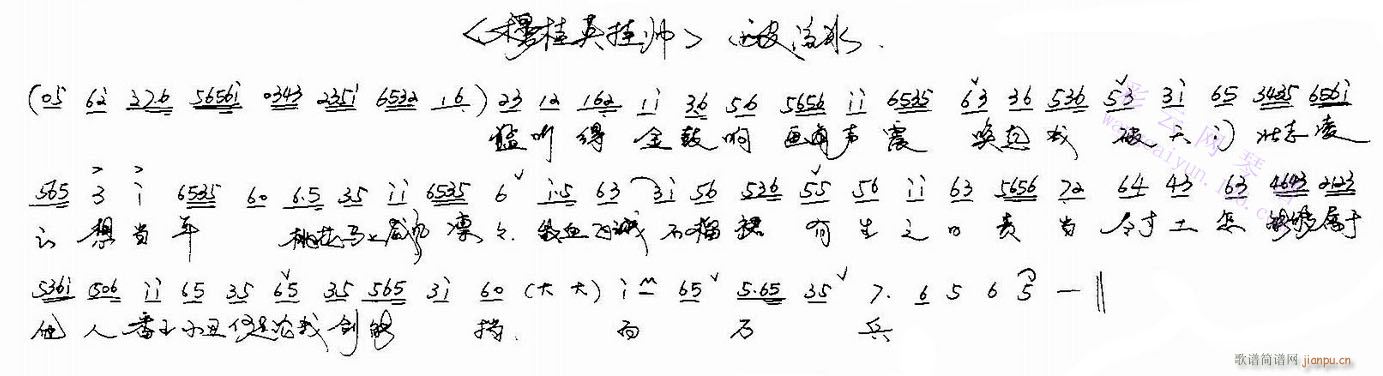 《穆桂英挂帅》 流水
(05 6i 27.6 5656i 0343 235i 6532 16) 23 12 162 1i 36 56 5656 ii 6535 63 36 536 53 3i 65 3435 656i
听得金鼓响画角声震 唤起我破天门壮志凌
565 3 i 6535 60 6.5 35 ii 6535 6 i.5 63 3i 56 536 55 56 ii 63 5656 72 64 43 63 4643 2123
云 想当年 桃花马上威风凛凛 敌血飞溅石榴裙 有生之日责当 寸土怎 属于
536i 506 ii 65 35 65 35 565 3i 60 (大大) i 65 5.65 35 7. 6 5 6 5 — ‖
他人 番王小丑 我剑 挡 百万兵
彩云网琴
歌谱简谱网 jianpu.cn